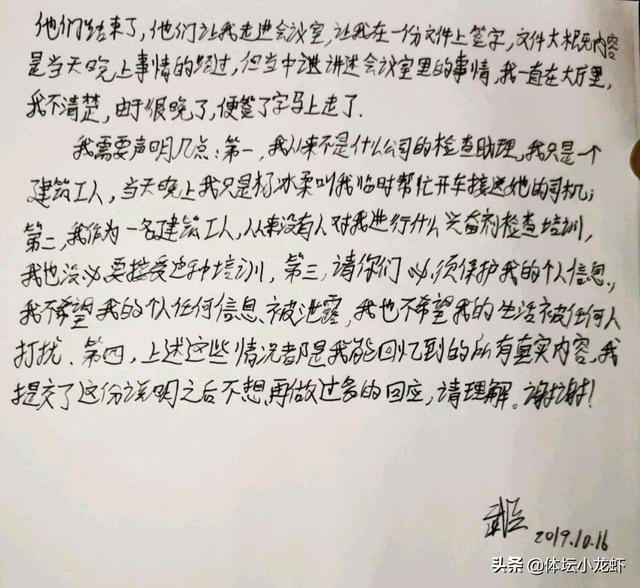 他们结束了，他们让我走进会议室，让我在一份文件上签字，文件大概内容
是当天晚上事情的经过，但当中讲述会议室里的事情，我一直在大厅里，
我不清楚，由于很晚了，便签了字马上走了．
我需要声明几点：第一，我从来不是什么公司的检查助理，我只是一个
建筑工人，当天晚上我只是杨冰柔叫我临时帮忙开车接送她的司机；
第二，我作为一名建筑工人，从来没有人对我进行什么兴奋剂检查培训，
我也没必要接受这种培训，第三，请你们必须保护我的个人信息，
我不希望我的个人任何信息被泄露，我也不希望我的生活被任何人
打扰、第四，上述这些情况都是我能回忆到的所有真实内容，我
提交了这份说明之后不想再做过多的回应，请理解。谢谢！
2019.10.16
头条 @体坛小龙虾